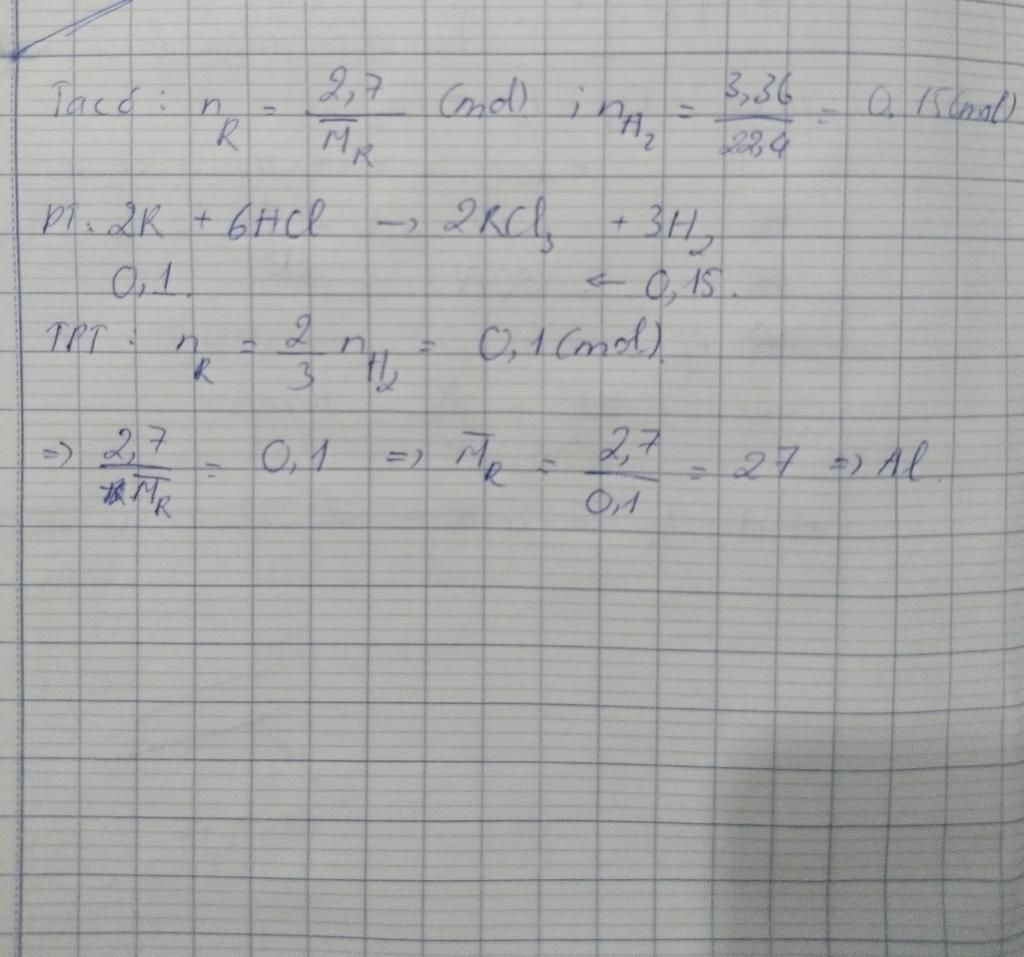 Ta có : n_R = 2,7/M_R (mol) ; n_H₂ = 3,36/22,4 = 0,15(mol)
PT: 2R + 6HCl → 2RCl₃ + 3H₂
0,1. ← 0,15.
TPT : n_R = 2/3 n_H₂ = 0,1(mol)
=> 2,7/M_R = 0,1 => M_R = 2,7/0,1 = 27 => Al.